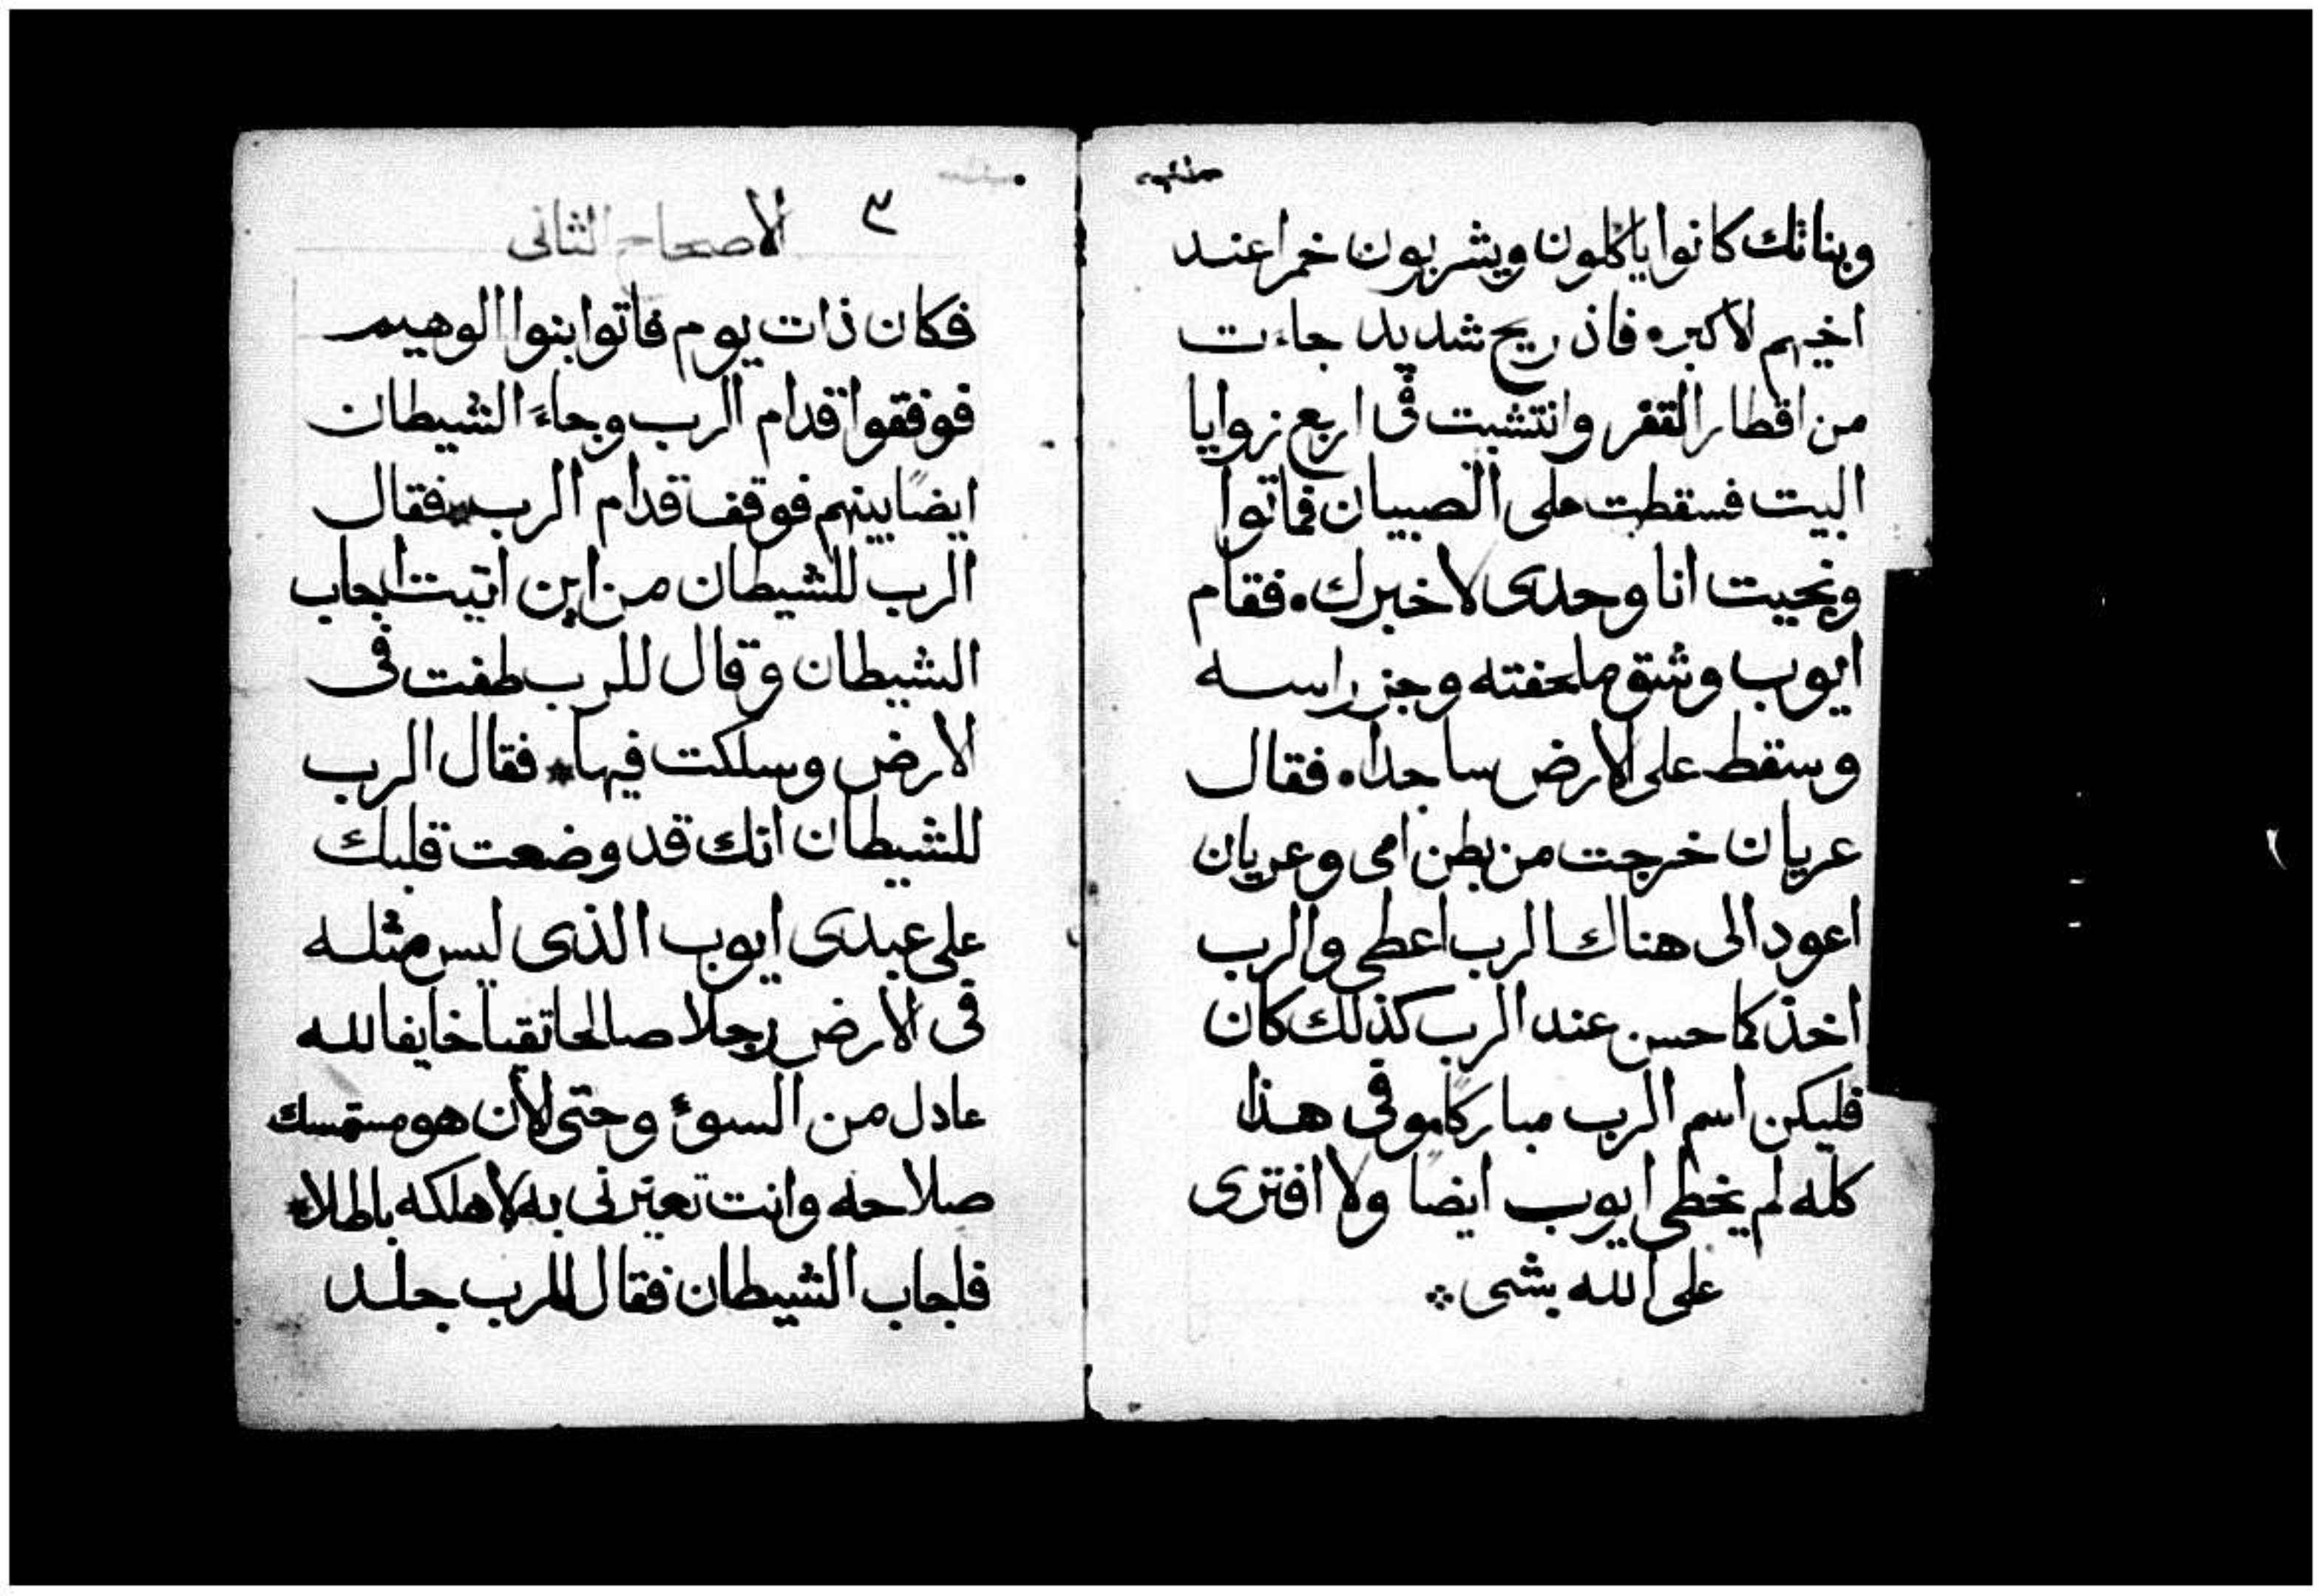 وبناتك كانوا ياكلون ويشربون خمرا عند
اخيهم الاكبر ه فاذ ريح شديد جاءت
من اقطار القفر وانتشبت في اربع زوايا
البيت فسقطت على الصبيان فماتوا
ونجيت انا وحدى لاخبرك ه فقام
ايوب وشق ملحفته وجز راسه
وسقط على الارض ساجدا ه فقال
عريان خرجت من بطن امى وعريان
اعود الى هناك الرب اعطى والرب
اخذ كما حسن عند الرب كذلك كان
فليكن اسم الرب مباركا وفى هذا
كله لم يخطى ايوب ايضا ولا افترى
على الله بشى
٣
الاصحاح الثانى
فكان ذات يوم فاتوا بنوا الوهيم
فوفقوا قدام الرب وجاء الشيطان
ايضا بينهم فوقف قدام الرب فقال
الرب للشيطان من اين اتيت اجاب
الشيطان وقال للرب طفت فى
الارض وسلكت فيها * فقال الرب
للشيطان انك قد وضعت قلبك
على عبدى ايوب الذى ليس مثله
فى الارض رجلا صالحا تقيا خايفا لله
عادل من السوء وحتى الان هو مستمسك
صلاحه وانت تعيرنى به لاهلكه باطلا *
فاجاب الشيطان فقال للرب جلد